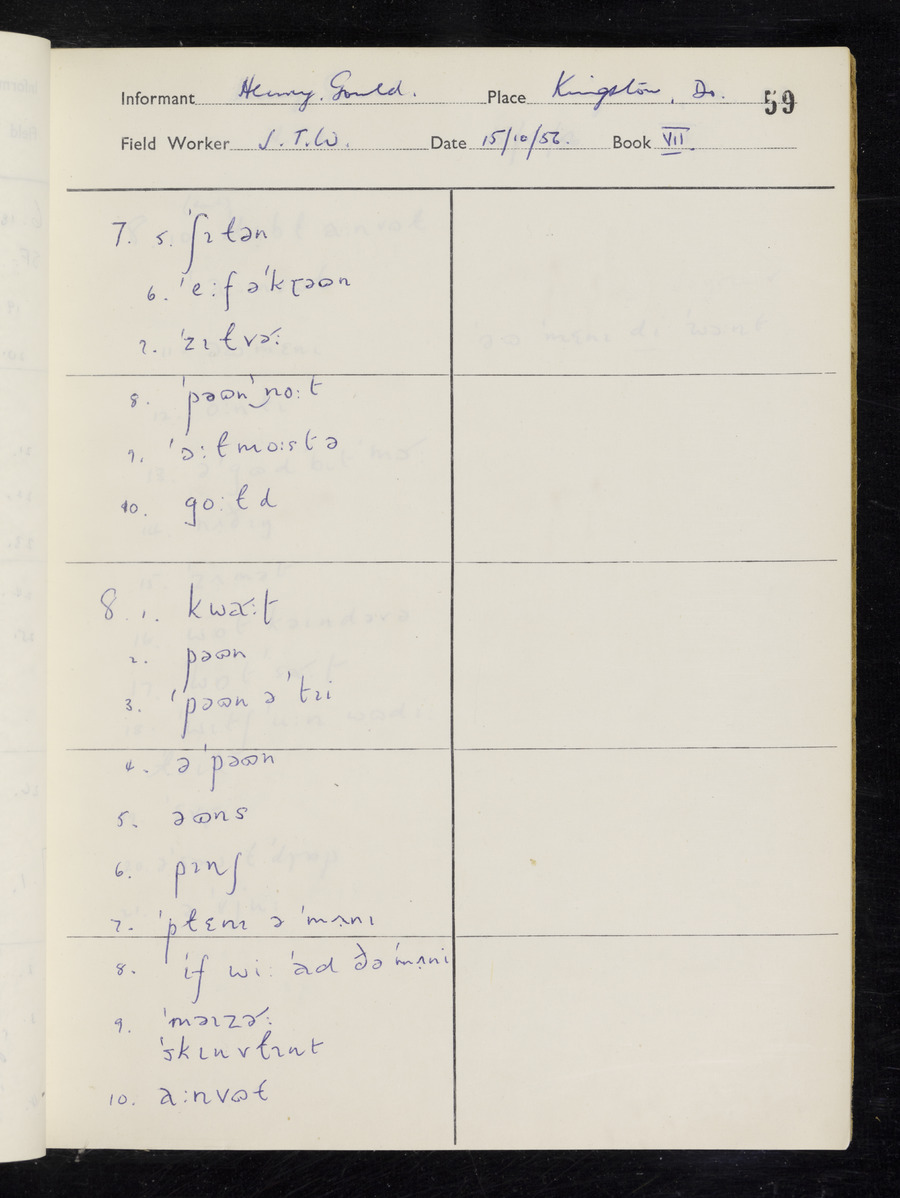 Informant Henry. Gould. Place Kingston, Do. 59
Field Worker J. T. W. Date 15/10/56. Book VII
7. 5. ˈʃɪɫən
6. ˈeːf əˈkɽəʊn
7. ˈzɪɫvəʴː
8. ˈpəʊnˈnoːt
9. ˈɔːɫmoːstə
10. goːɫd
8. 1. kwəʴːt
2. pəʊn
3. ˈpəʊn əˈtɹi
4. əˈpəʊn
5. əʊns
6. pɪnʃ
7. ˈpɫɛnɪ ə ˈmʌnɪ
8. ˈif wiː ˈad ðəˈmʌni
9. ˈməɪzəʴː
ˈskɪnvɫɪnt
10. aːnvʊɫ